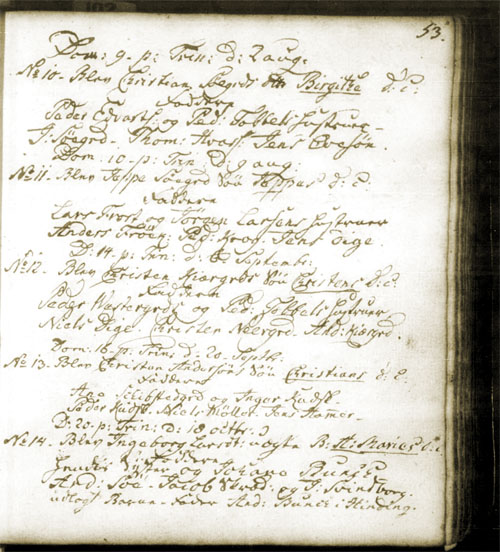 53.
Dom: 9. p: Trin: d: 2 aug:
No 10. Blev Christian Skegrds dtr Birgitte d: C:
Faddere
Peder Edvarts: og Ped: Tolbels hustruer
J: Skegrd. Thom: Hvass Jens Ovesøn.
Dom: 10. p: Trin d: 9 aug:
No 11. Blev Jeppe Søegrd Søn Jeppes d: C:
Faddere
Lars Frost og Jørgen Larsens hustruer
Anders Frøen, Ped: Krog. Jens Dige.
D: 14. p: Trin: d: 6 Septembr:
No 12. Blev Christen Kiærgrds Søn Christens d: C:
Faddere
Peder Westergrds og Ped: Tolbels hustruer
Niels Dige. Christen Neergrd. And: Kiærgrd.
Dom: 16. p: Trin: d: 20. Septb:
No 13. Blev Christen Andersøns Søn Christians d: C:
Faddere
og Inger Rudsk.
Peder Rudsk. Niels Møller. Jens Hamer.
D: 20. p: Trin: d: 18 octbr:
No 14. Blev Ingeborg Larsdt: uægte B: A: Maries d: C:
Faddere
og Johane Bunse
And: Søe. Jacob og J: Svindborg.
udlagt Barne-Fader And: Bunse i Hinding.